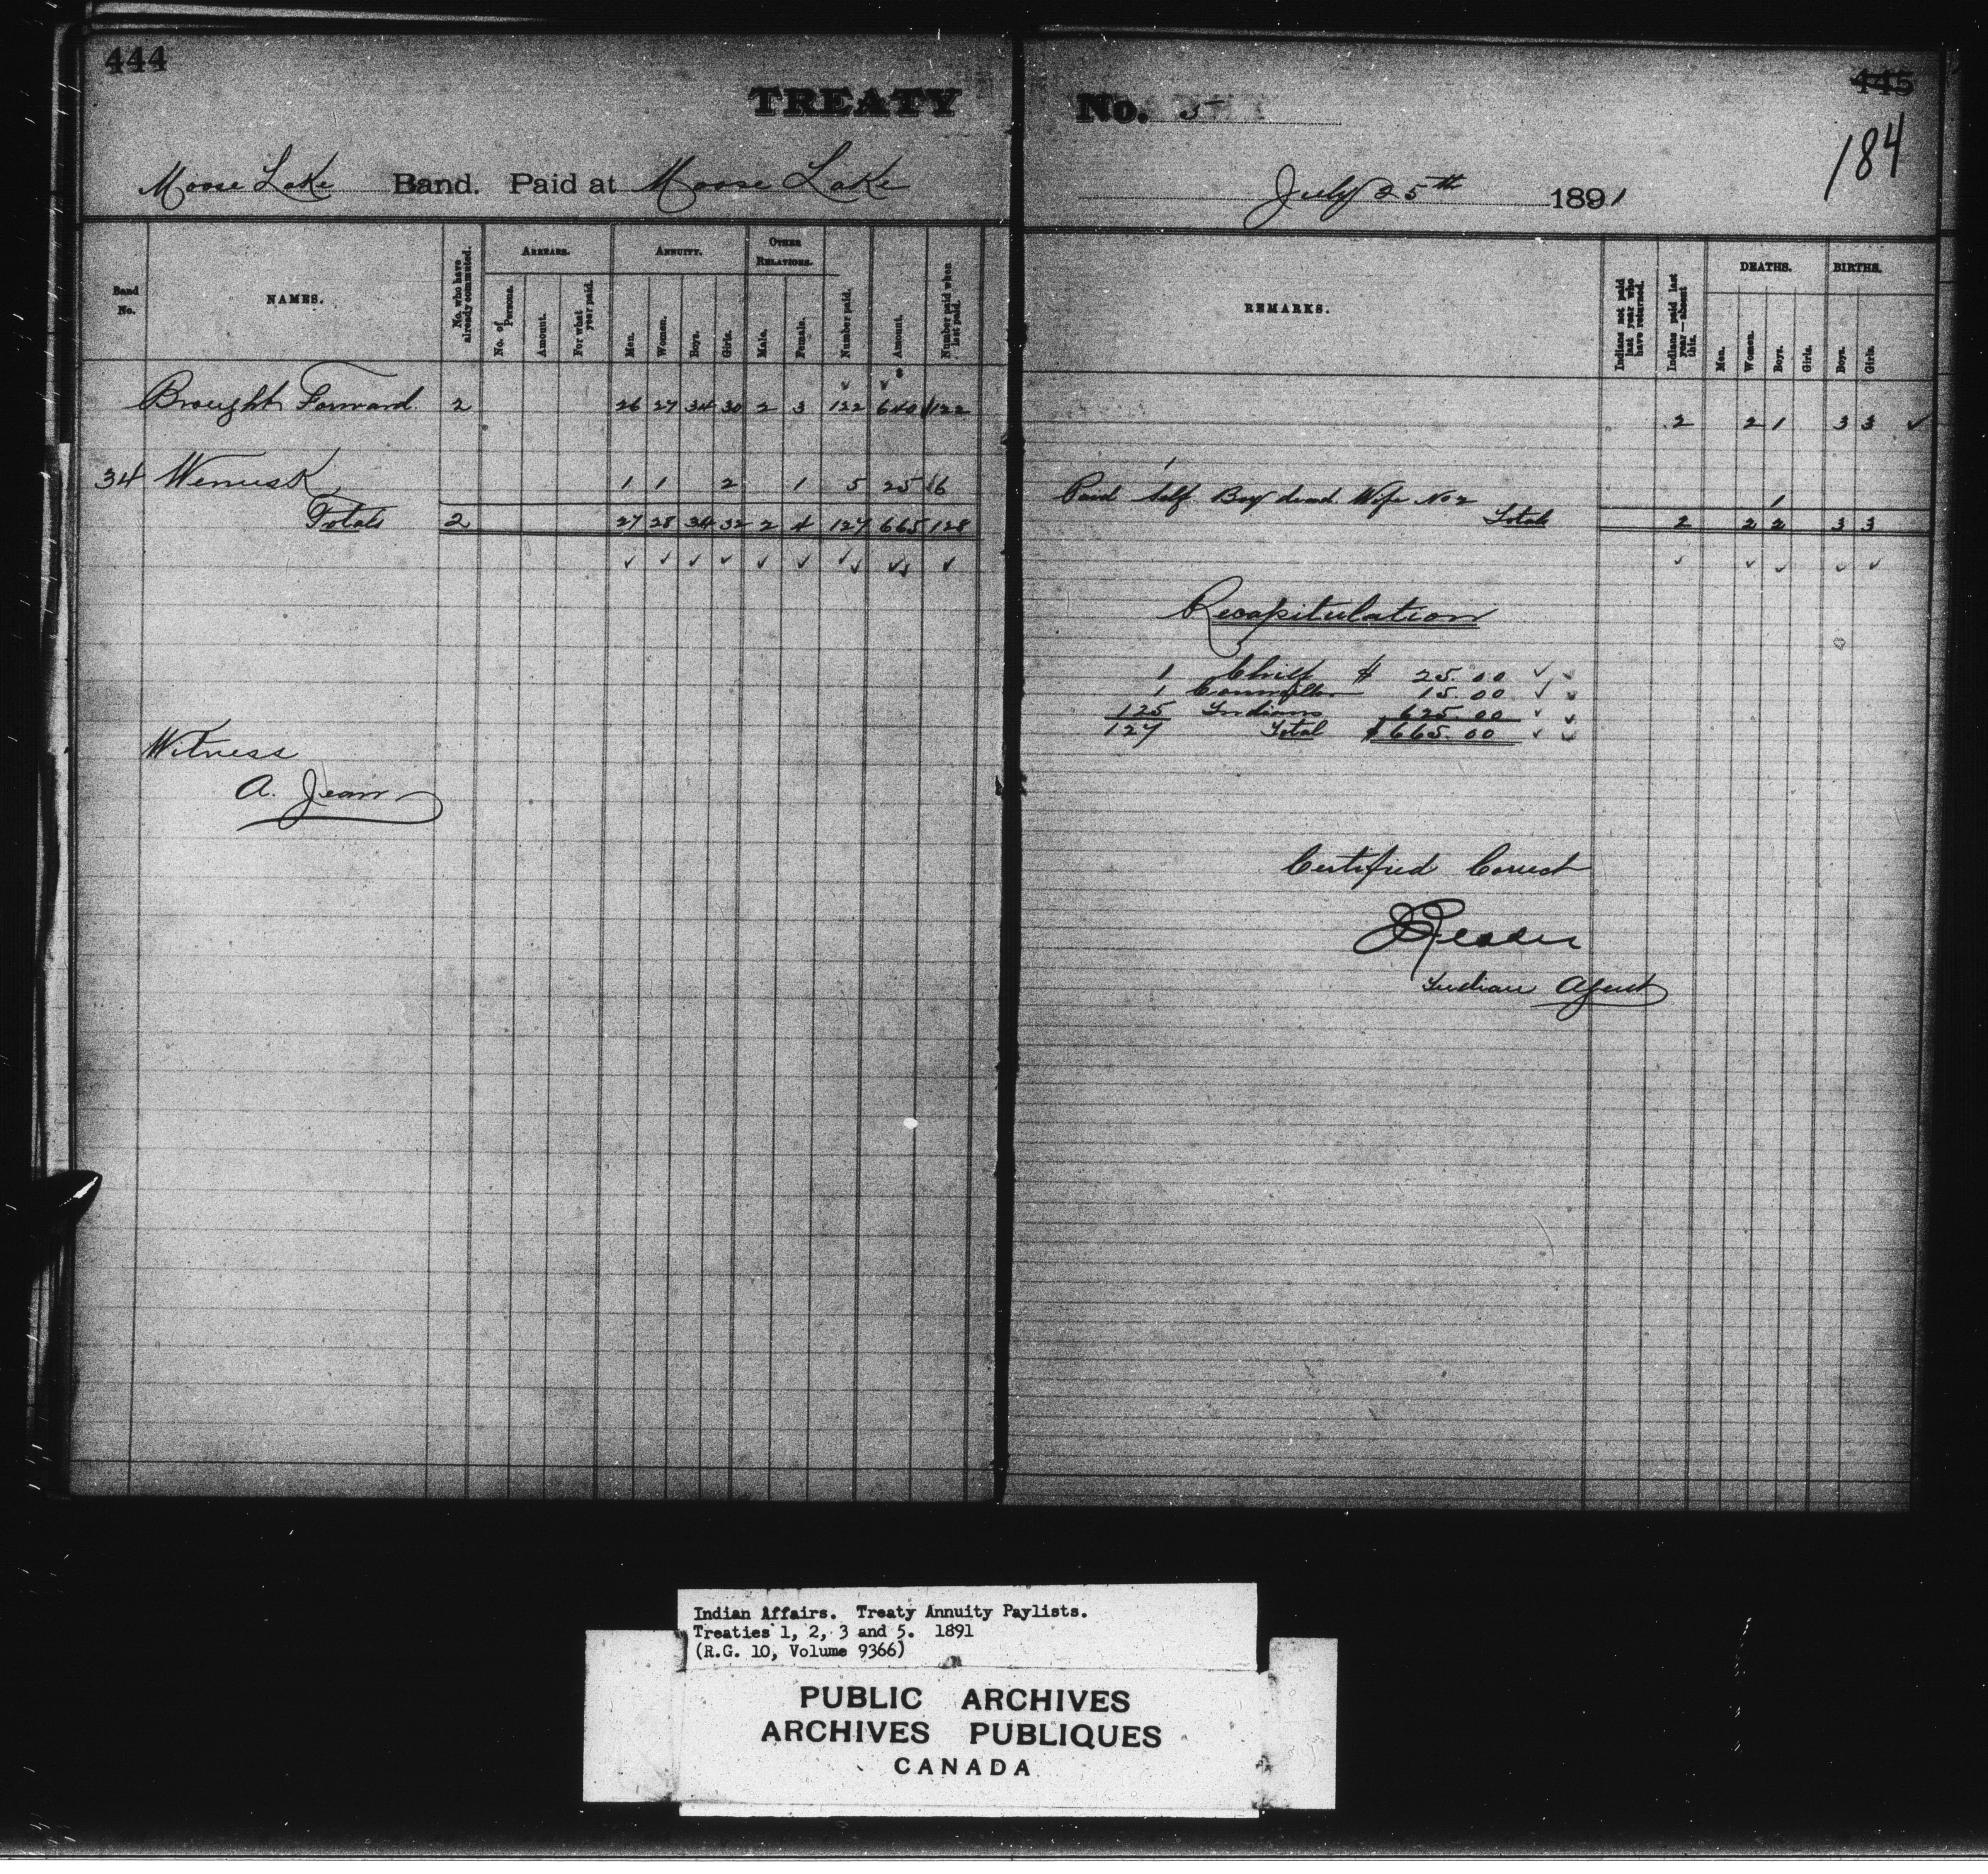 444
445
184
TREATY No. 5
Moose Lake Band. Paid at Moose Lake July 25th 1891
Band No.
NAMES.
No. who have already commuted.
ARREARS.
No. of Persons.
Amount.
For what year paid.
ANNUITY.
Men.
Women.
Boys.
Girls.
OTHER RELATIONS.
Male.
Female.
Number paid.
Amount.
Number paid when last paid.
REMARKS.
Indians not paid last year who have returned.
Indians paid last year—absent this.
DEATHS.
Men.
Women.
Boys.
Girls.
BIRTHS.
Boys.
Girls.
Brought Forward. 2 26 27 34 30 2 3 122 640 122 2 2 1 3 3 ✓
34 Wemusk 1 1 2 1 5 25 6 Paid Self Boy dead Wife No 2 1
Totals 2 27 28 34 32 2 4 127 665 128 Totals 2 2 2 3 3
Recapitulation
1 Chief $ 25.00
1 Councillor 15.00
125 Indians 625.00
127 Total $665.00
Witness
A. Jean
Certified Correct
J Reader
Indian Agent
Indian Affairs. Treaty Annuity Paylists.
Treaties 1, 2, 3 and 5. 1891
(R.G. 10, Volume 9366)
PUBLIC ARCHIVES
ARCHIVES PUBLIQUES
CANADA